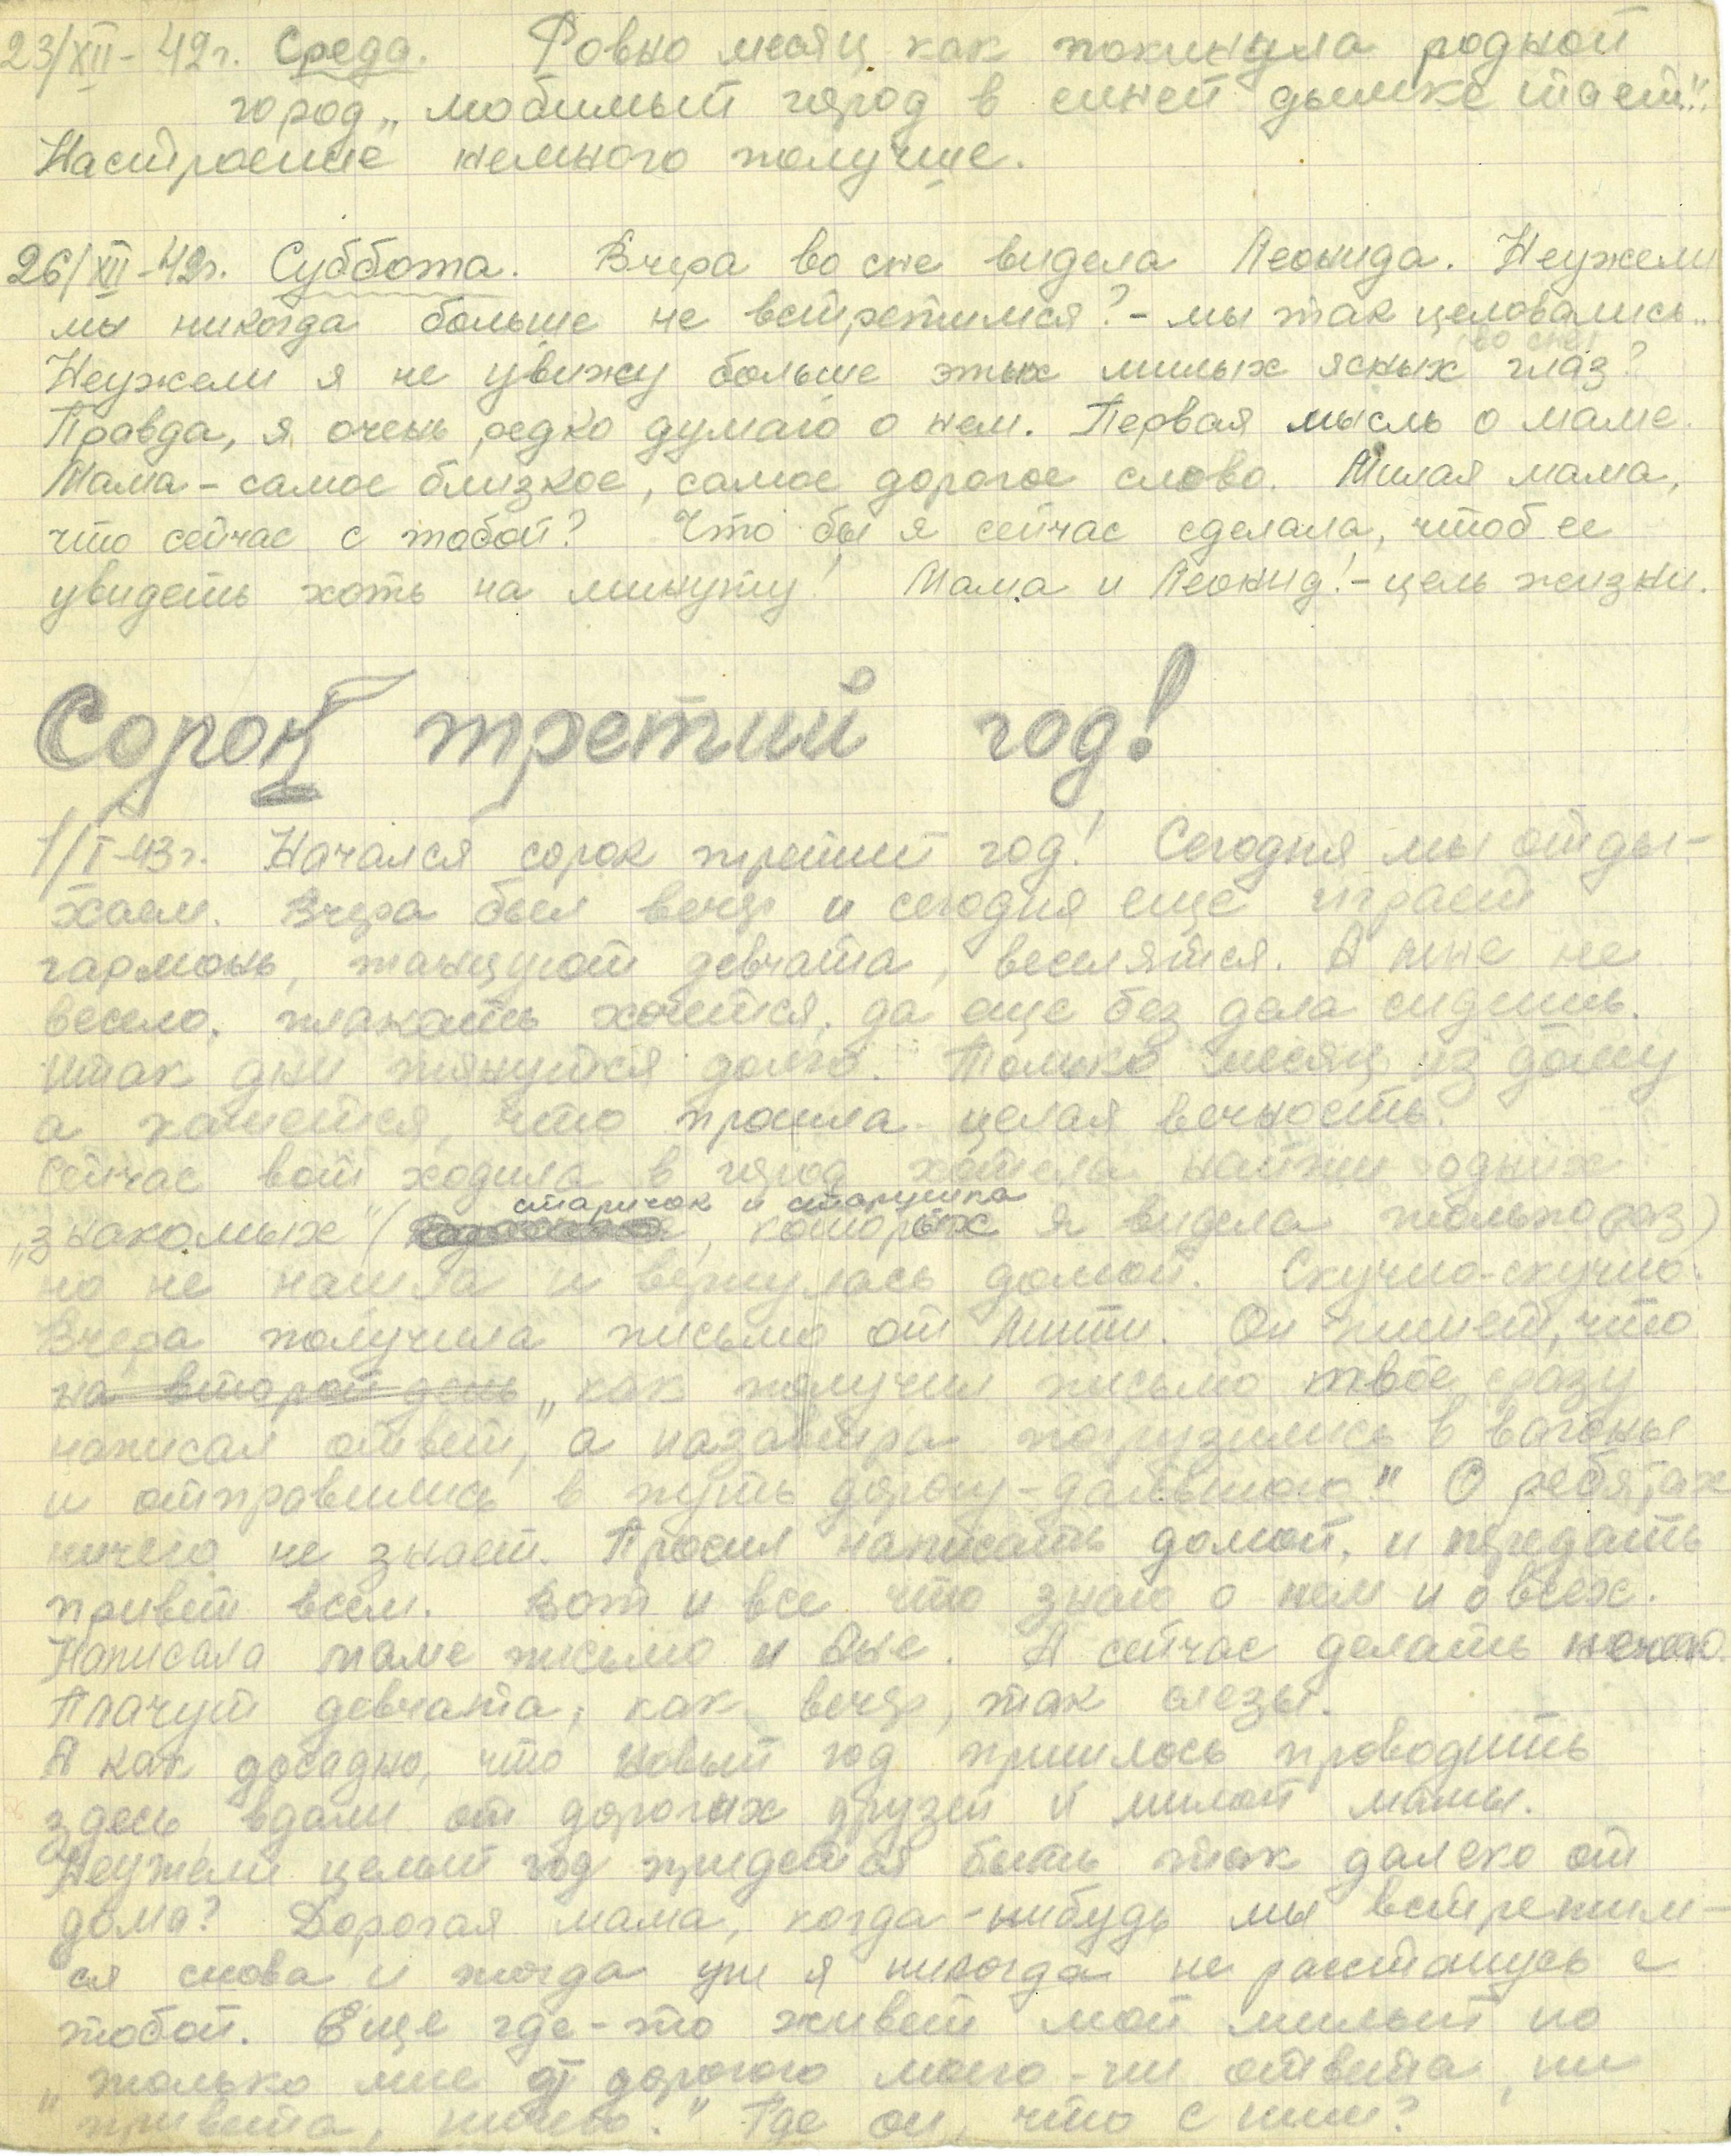 23/XII-42г. Среда. Ровно месяц как покинула родной
город „любимый город в синей дымке тает".
Настроение немного получше.
26/XII-42г. Суббота. Вчера во сне видела Леонида. Неужели
мы никогда больше не встретимся? - мы так целовались..
(во сне)
Неужели я не увижу больше этих милых ясных глаз?
Правда, я очень редко думаю о нем. Первая мысль о маме.
Мама - самое близкое, самое дорогое слово. Милая мама,
что сейчас с тобой? Что бы я сейчас сделала, чтоб ее
увидеть хоть на минуту! Мама и Леонид! - цель жизни.
Сорок третий год!
1/I-43г. Начался сорок третий год! Сегодня мы отды-
хаем. Вчера был вечер и сегодня еще играет
гармонь, танцуют девчата, веселятся. А мне не
весело, плакать хочется, да еще без дела сидишь.
Итак дни тянутся долго. Только месяц из дому
а кажется, что прошла целая вечность.
Сейчас вот ходила в город хотела найти одних
старичок и старушка
„знакомых" ( , которых я видела только раз)
но не нашла и вернулась домой. Скучно-скучно.
Вчера получила письмо от Мити. Он пишет, что
на второй день „как получил письмо твое, сразу
написал ответ, а назавтра погрузились в вагоны
и отправились в путь дорогу - дальнюю" О ребятах
ничего не знает. Просил написать домой, и передать
привет всем. Вот и все что знаю о нем и о всех.
Написала маме письмо и Вые. А сейчас делать нечего.
Плачут девчата, как вечер, так слезы.
А как досадно, что новый год пришлось проводить
здесь вдали от дорогих друзей и милой мамы.
Неужели целый год придется быть так далеко от
дома? Дорогая мама, когда-нибудь мы встретим-
ся снова и тогда уж я никогда не расстанусь с
тобой. Еще где-то живет мой милый но
„только мне от дорогого моего - ни ответа, ни
привета, ничего." Где он, что с ним?